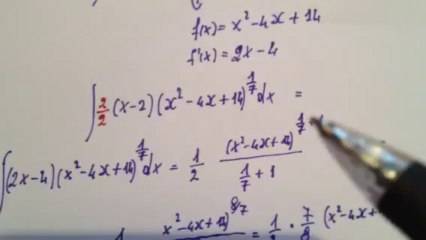 f(x) = x² - 4x + 14
f'(x) = 2x - 4
∫ 2/2 (x-2) (x² - 4x + 14)^(1/7) dx =
∫ (2x-4) (x² - 4x + 14)^(1/7) dx = 1/2 (x² - 4x + 14)^(1/7 / (1/7 + 1)
x² - 4x + 14)^(8/7) = 1/2 · 7/8 (x² - 4x